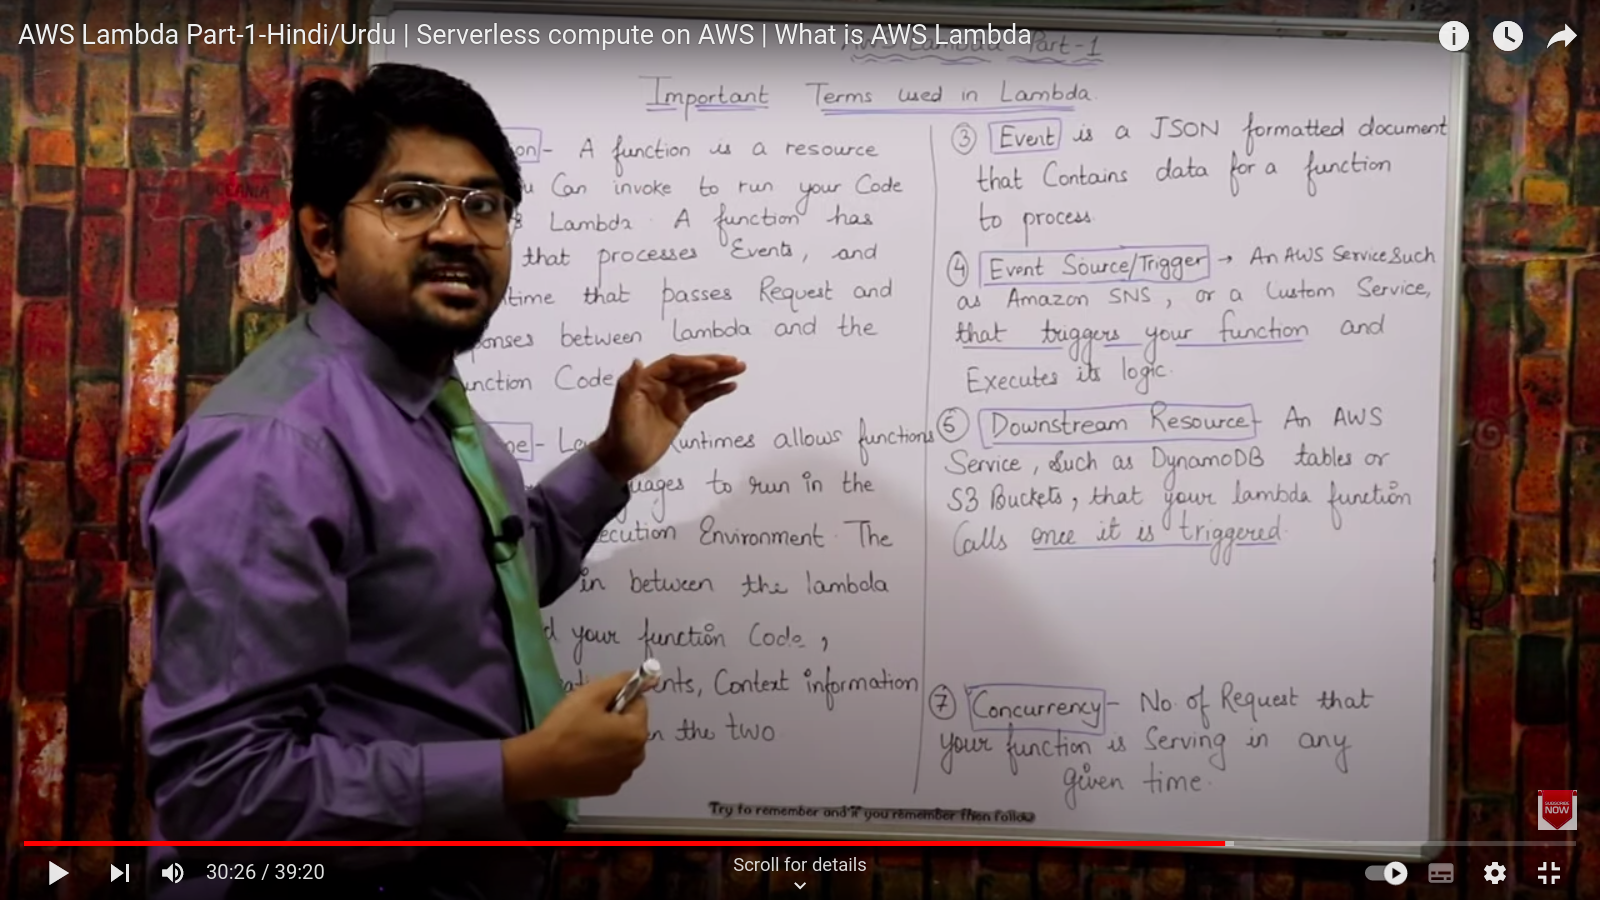 AWS Lambda Part-1-Hindi/Urdu | Serverless compute on AWS | What is AWS Lambda
AWS Lambda Part-1
Important Terms used in Lambda.
on - A function is a resource
u Can invoke to run your Code
Lambda. A function has
that processes Events, and
time that passes Request and
ponses between lambda and the
unction Code
ne - Runtimes allows functions
uages to run in the
ecution Environment. The
in between the lambda
d your function Code,
nts, Context information
n the two
③ Event is a JSON formatted document
that Contains data for a function
to process.
④ Event Source/Trigger → An AWS Service Such
as Amazon SNS, or a Custom Service,
that triggers your function and
Executes its logic.
Downstream Resource - An AWS
Service, Such as DynamoDB tables or
S3 Buckets, that your lambda function
Calls once it is triggered.
⑦ Concurrency - No. of Request that
your function is Serving in any
given time.
Try to remember and if you remember then follow
OCEANIA
SUBSCRIBE
NOW
30:26 / 39:20
Scroll for details